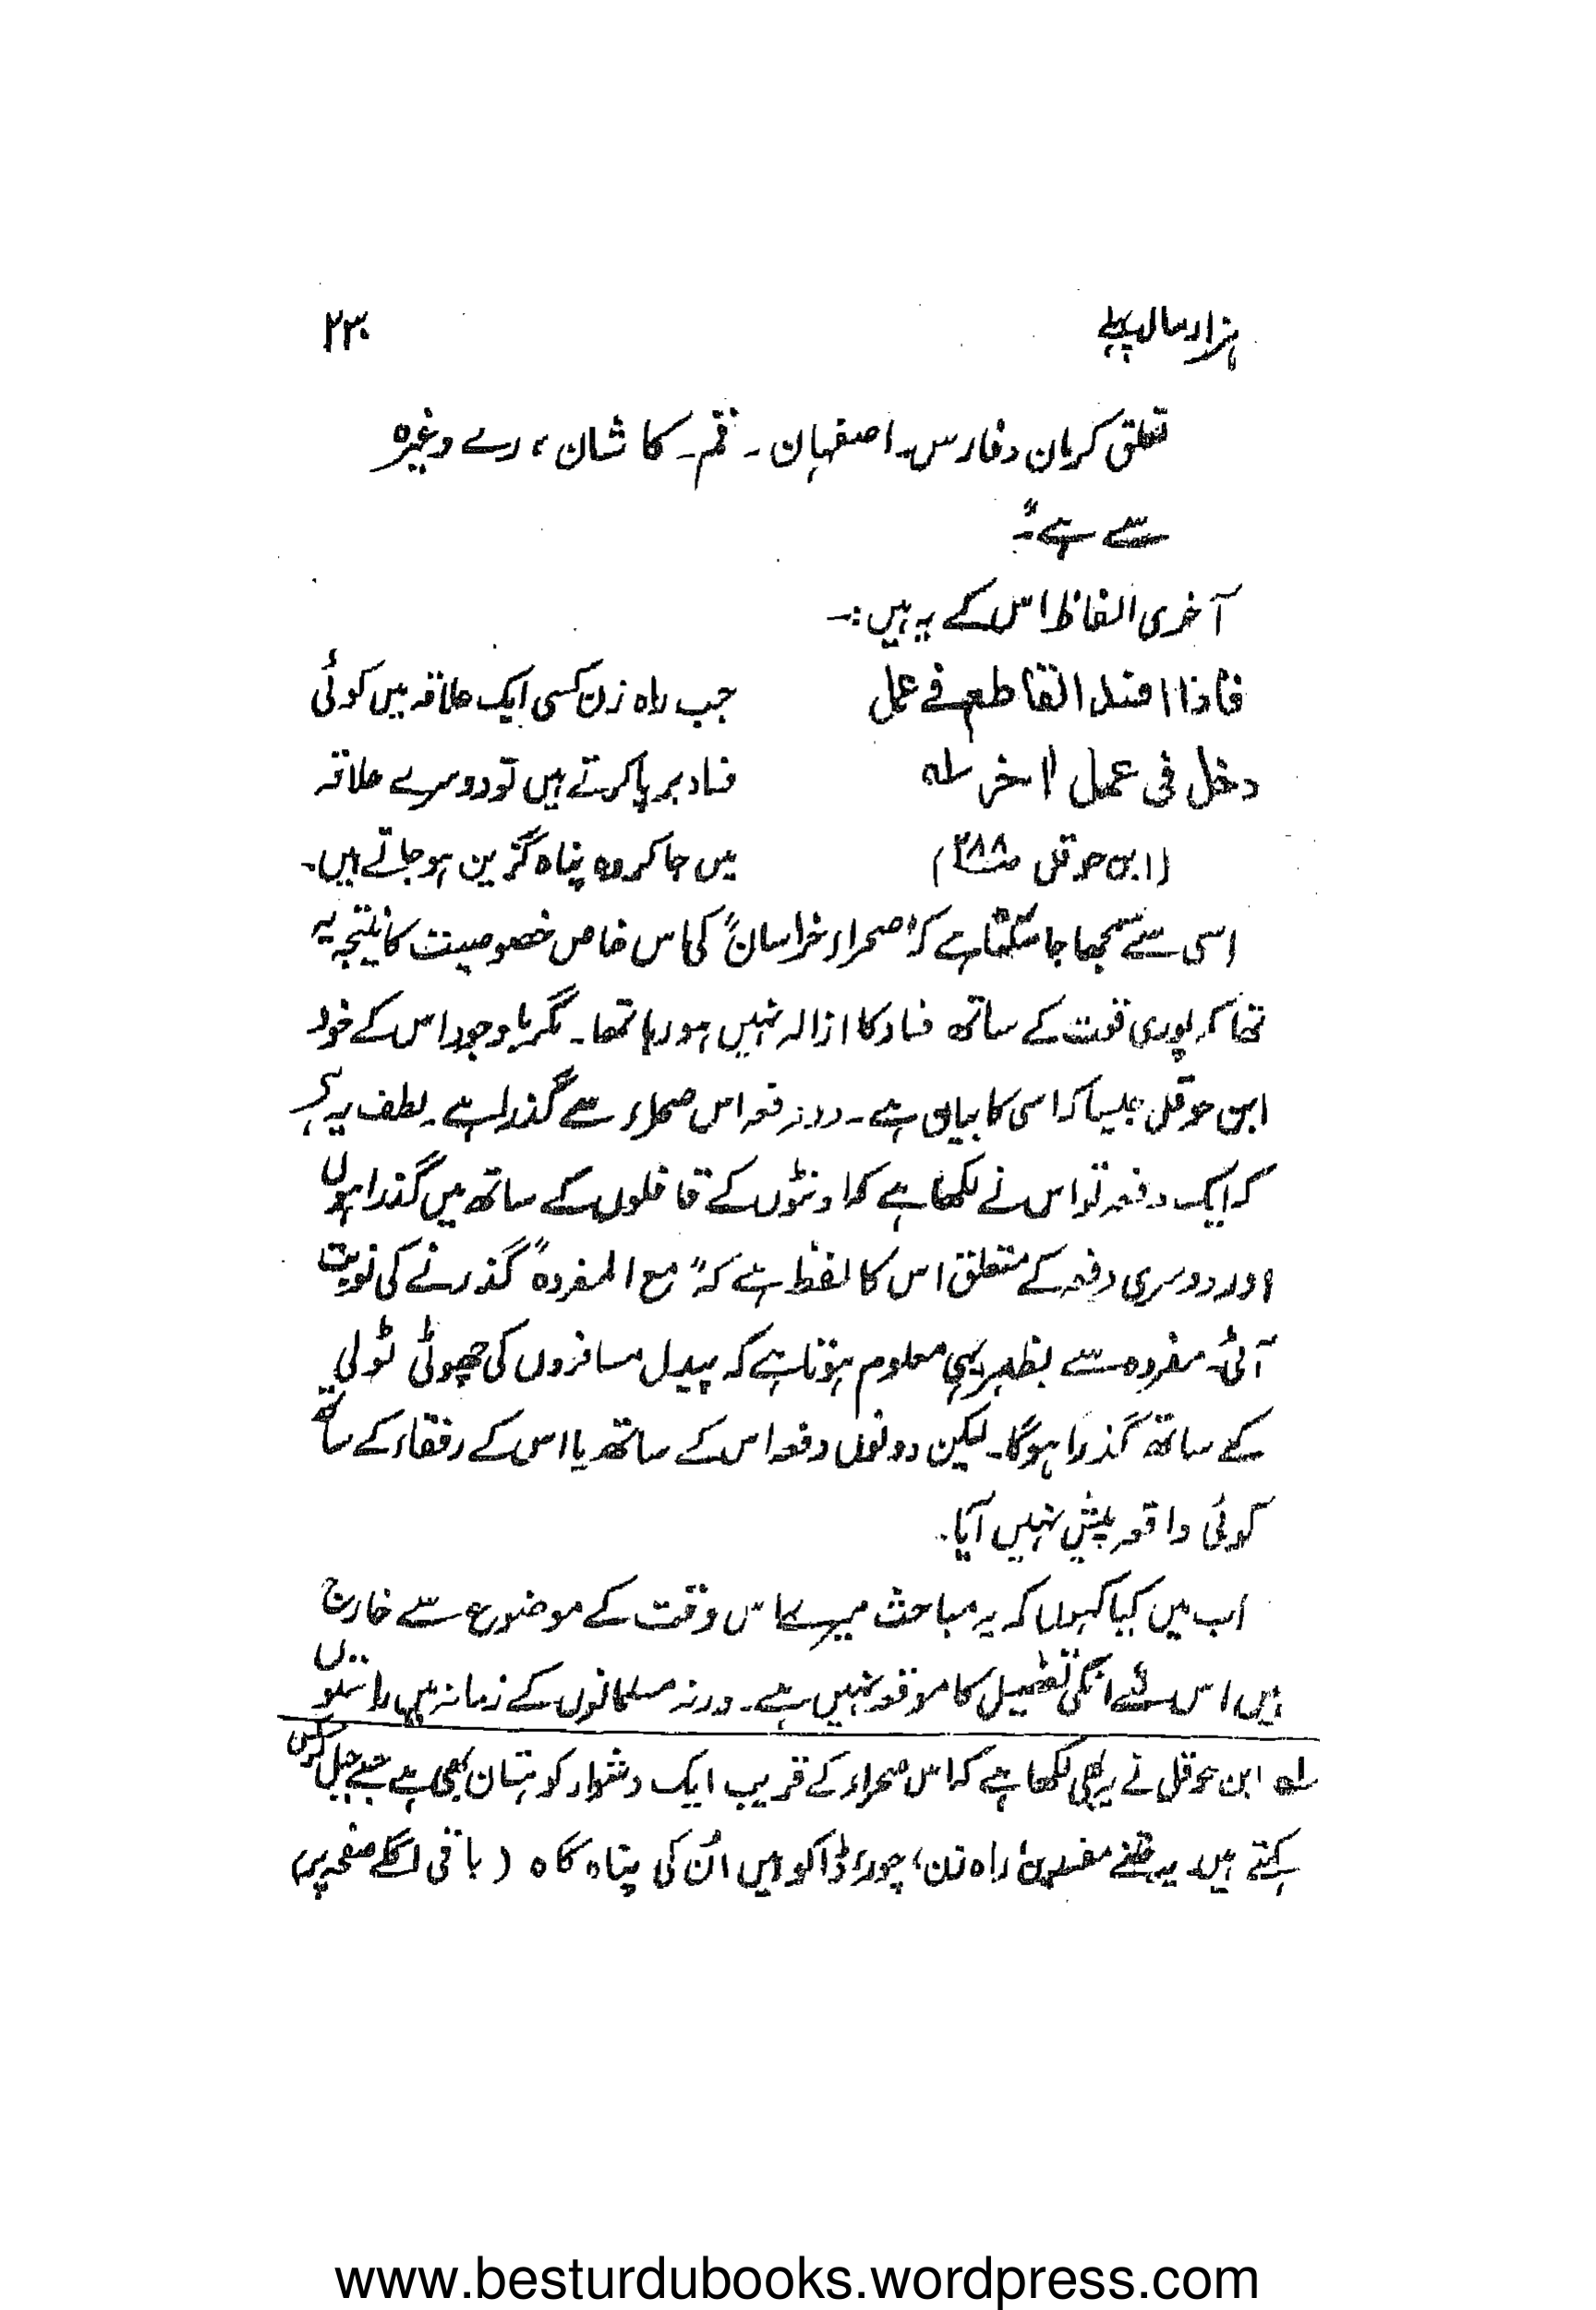 ہزار سال پہلے ۲۳۰
تعلق کرمان و فارس۔ اصفہان ۔ قم۔ کاشان، رے وغیرہ
سے ہے"۔
آخری الفاظ اس کے یہ ہیں:۔
فاذا افسد القاطع فے عمل
دخل فی عمل اٰخر لہ
(ابن حوقل ص۲۸۸)
جب راہ زن کسی ایک علاقہ میں کوئی
فساد برپا کرتے ہیں تو دوسرے علاقہ
میں جا کر وہ پناہ گزین ہو جاتے ہیں۔
اسی سے سمجھا جا سکتا ہے کہ "صحراء خراسان" کی اس خاص خصوصیت کا نتیجہ یہ
تھا کہ پوری قوت کے ساتھ فساد کا ازالہ نہیں ہو رہا تھا۔ مگر باوجود اس کے خود
ابن حوقل جیسا کہ اسی کا بیان ہے۔ دو دفعہ اس صحراء سے گذرا ہے۔ لطف یہ ہے
کہ ایک دفعہ تو اس نے لکھا ہے کہ اونٹوں کے قافلوں کے ساتھ میں گذرا ہوں
اور دوسری دفعہ کے متعلق اس کا لفظ ہے کہ "مع المفردہ" گذرنے کی نوبت
آئی۔ مفردہ سے بظاہر یہی معلوم ہوتا ہے کہ پیدل مسافروں کی چھوٹی ٹولی
کے ساتھ گذرا ہوگا۔ لیکن دونوں دفعہ اس کے ساتھ یا اس کے رفقاء کے ساتھ
کوئی واقعہ پیش نہیں آیا۔
اب میں کیا کہوں کہ یہ مباحث میرے اس وقت کے موضوع سے خارج
ہیں اس لئے انکی تفصیل کا موقعہ نہیں ہے۔ ورنہ مسلمانوں کے زمانہ میں راستوں
لہ ابن حوقل نے یہ بھی لکھا ہے کہ اس صحراء کے قریب ایک دشوار کوہستان بھی ہے جسے جبل کرکس
کہتے ہیں یہ جتنے مفسد راہ زن، چور، ڈاکو ہیں اُن کی پناہ گاہ (باقی اگلے صفحہ پر)
www.besturdubooks.wordpress.com